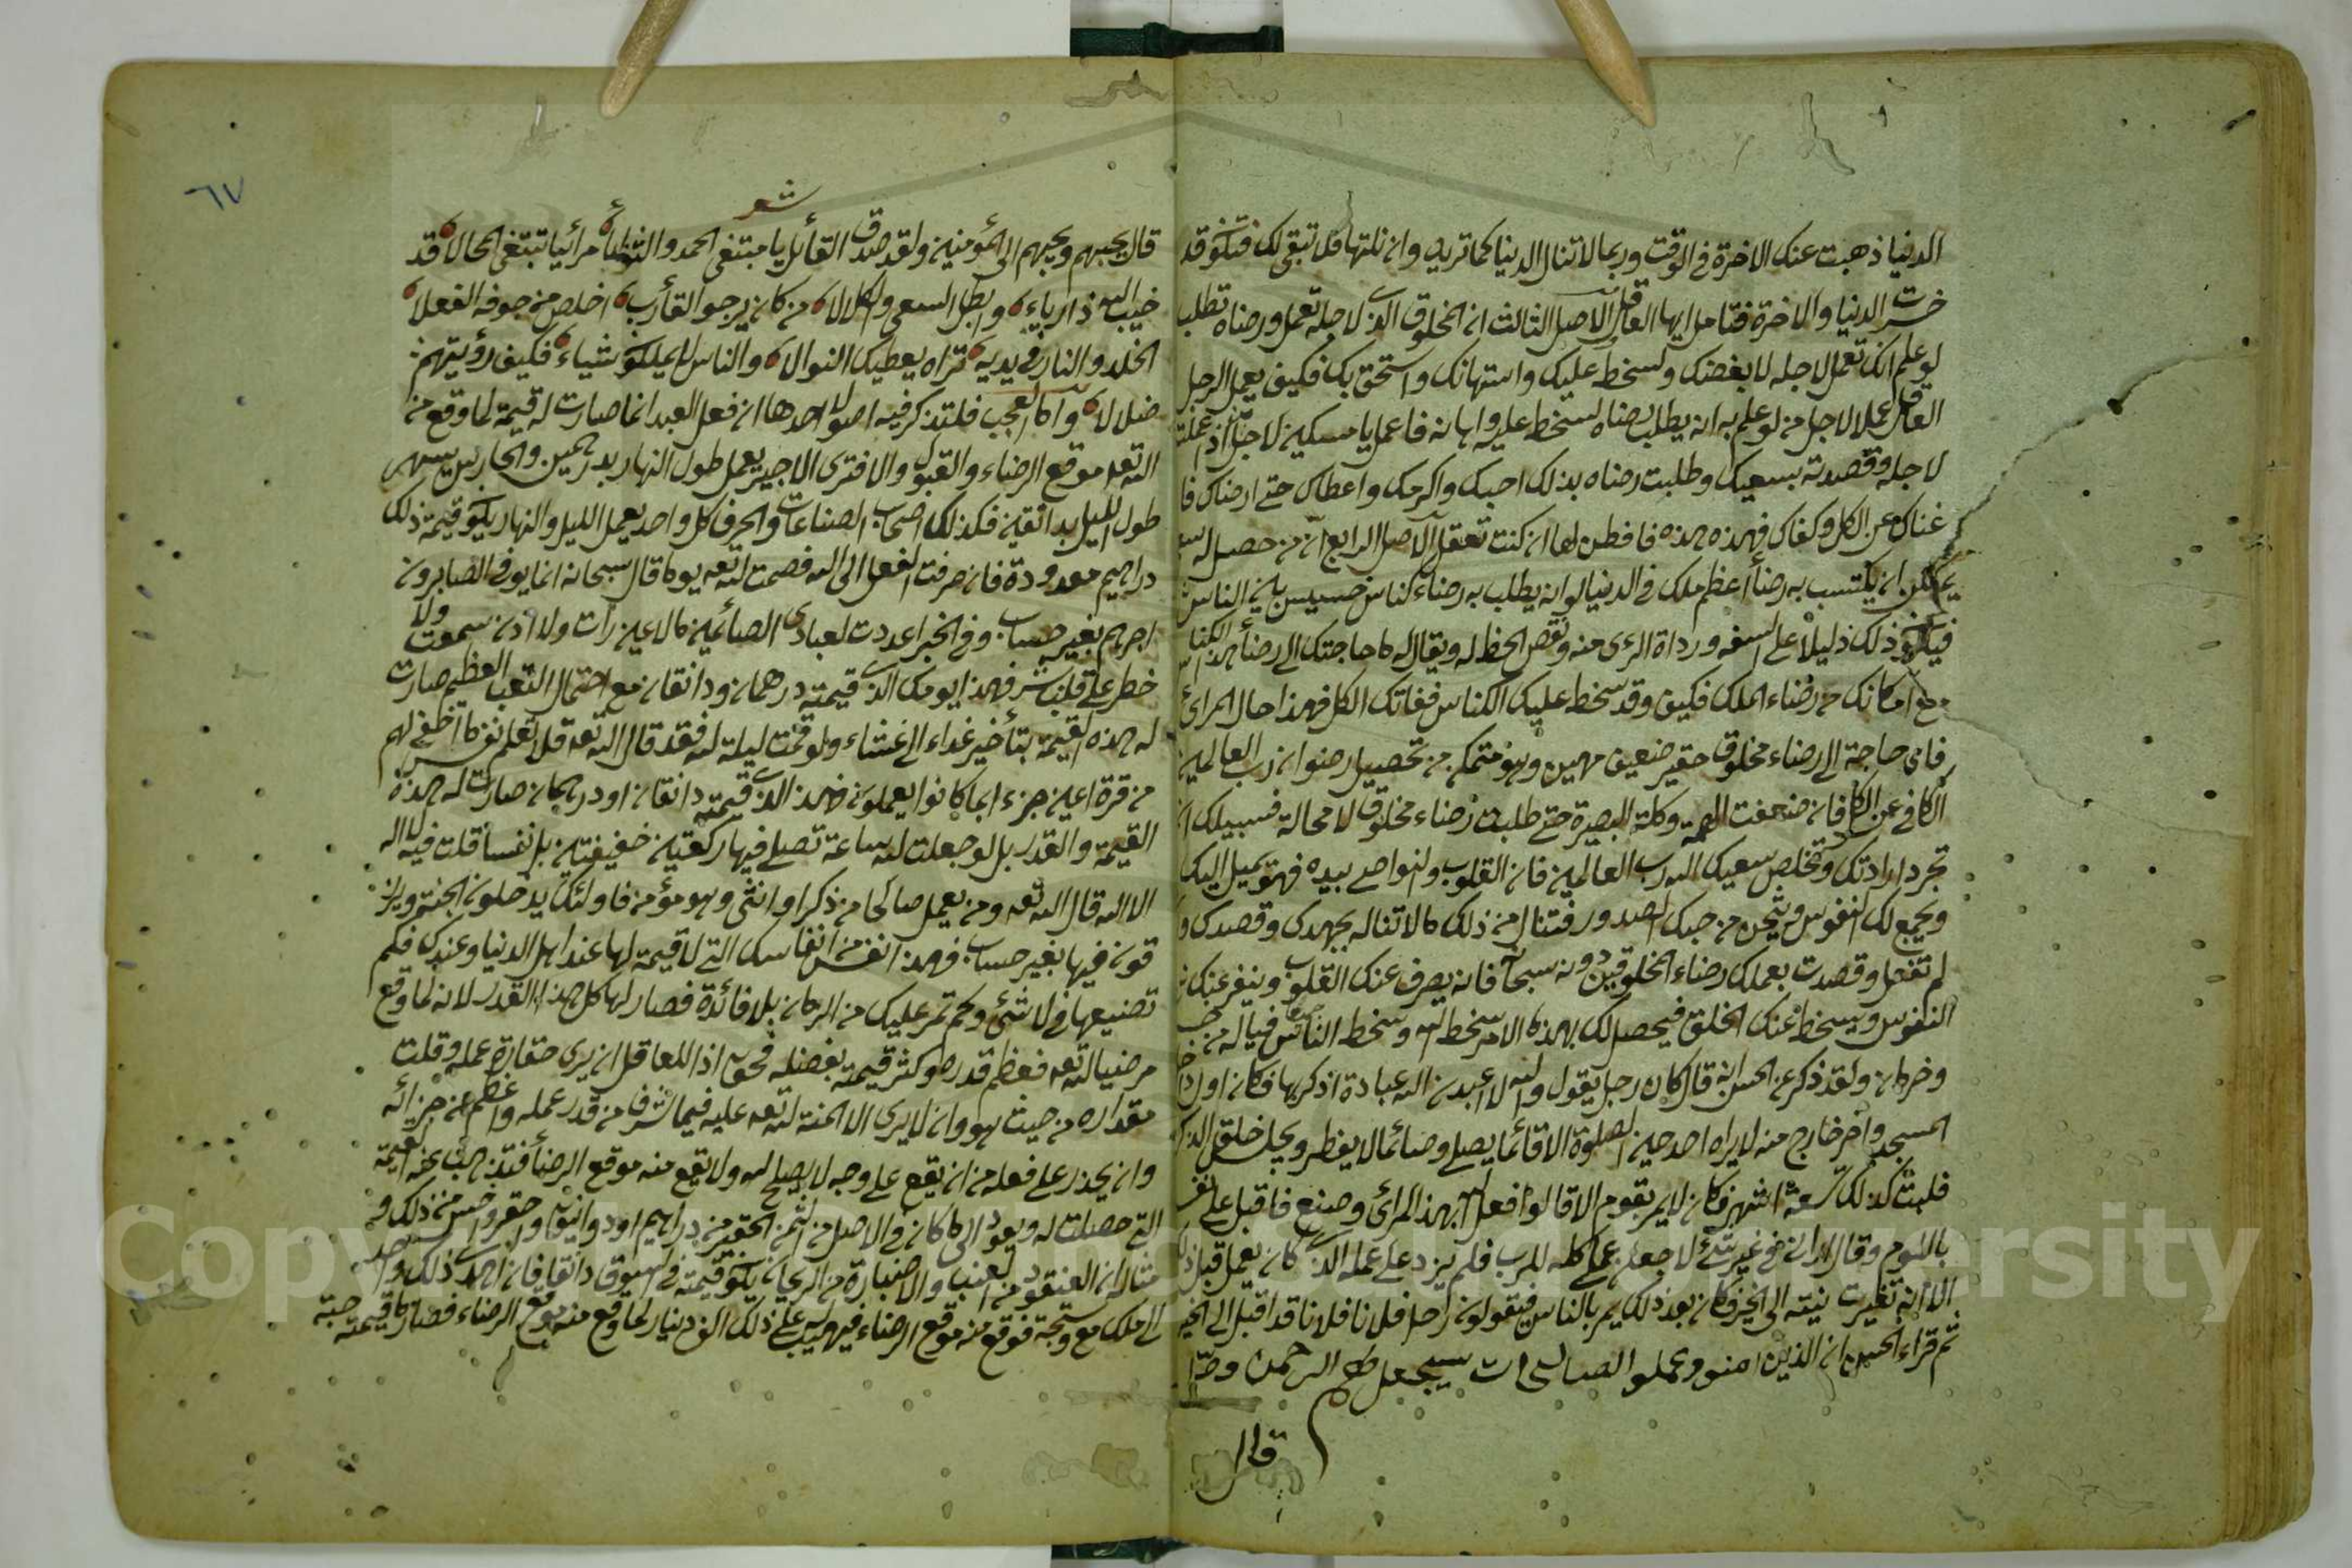 الدنيا ذهبت عنك الاخرة في الوقت وربما لا تنال الدنيا كما تريد وان نلتها فلا تبقى لك فتكون قد
خسرت الدنيا والاخرة فتامل ايها العاقل الاصل الثالث ان المخلوق الذي لاجله تعمل ورضاه تطلب
لو علم انك تعمل لاجله لابغضك ولسخط عليك واستهانك واستخف بك فكيف يعمل الرجل
العاقل عملا لاجل من لو علم به انه يطلب رضاه لسخط عليه واهانه فاعمل يا مسكين لاجل من اذا عملت
لاجله وقصدته بسعيك وطلبت رضاه بذلك احبك واكرمك واعطاك حتى ارضاك فا
غناك عن الكل وكفاك فهذه هذه فافطن لها ان كنت تعقل الاصل الرابع ان من حصل له سعي
يمكن ان يكتسب به رضاء اعظم ملك في الدنيا لو انه يطلب به رضاء كناس خسيس بين الناس
فيكون ذلك دليلا على السفه ورداة الرى منه ونقص الحظ له ويقال له ما حاجتك الى رضاء هذا الكناس
مع امكانك من رضاء الملك فكيف وقد سخط عليك الكناس ففاتك الكل فهذا حال المرائ
فاى حاجة الى رضاء مخلوق حقير ضعيف مهين وهو متمكن من تحصيل رضوان رب العالمين
الكافى عن الكل فان ضعفت الهمة وكلة البصيرة حتى طلبت رضاء مخلوق لا محالة فسبيلك ان
تجرد ارادتك وتخلص سعيك لله رب العالمين فان القلوب والنواصى بيده فهو يميل اليك
ويجمع لك النفوس ويشحن من حبك الصدور فتنال من ذلك مالا تناله بجهدك وقصدك و
لم تفعل وقصدت بعملك رضاء المخلوقين دونه سبحانه فانه يصرف عنك القلوب وينفر عنك
النفوس ويسخط عنك الخلق فيحصل لك بهذه الامر سخط الله وسخط الناس فياله من
وخرمان ولقد ذكر عن الحسن انه قال كان رجل يقول والله لا عبدن الله عبادة اذكر بها فكان اول
المسجد واخر خارج منه لا يراه احد حين الصلوة الا قائما يصلى وصائما لا يفطر ويجلس خلق الذكر
فلبث كذلك سبعة اشهر فكان لا يمر بقوم الا قالوا فعل الله بهذا المرائ وصنع فاقبل على نفسه
باللوم وقال انى فى غير شئ لاجعلن عملى كله للرب فلم يزد على عمله الذى كان يعمل قبل ذلك
الا انه تغيرت نيته الى الخير فكان بعد ذلك يمر بالناس فيقولون رحم الله فلانا فلانا قد اقبل الى الخير
ثم قراء الحسن ان الذين امنو وعملو الصالحات سيجعل لهم الرحمن ودا
قال
٦٧
شعر
قال يحبهم ويحبهم الى المؤمنين ولقد صدق القائل يا مبتغى الحمد والثوابا مرائيا تبتغى المحالا قد
خيب الله ذا رياء وابطل السعى والكلالا من كان يرجو القارب اخلص من خوفه الفعلا
الخلد والنار فى يديه تراه يعطيك النوالا والناس لا يملكون شياء فكيف رؤيتهم
ضلالا واما العجب فلتذكر فيه اصولا احدها ان فعل العبد انما صارت له قيمة لما وقع من
الله تعه موقع الرضاء والقبول والا فترى الاجير يعمل طول النهار بدرهمين والحارس يسهر
طول الليل بدانقين فكذلك اصحاب الصناعات والحرف كل واحد يعمل الليل والنهار يكون قيمة ذلك
دراهم معدودة فان صرفت الفعل الى الله فصمت لله تعه يوما قال سبحانه انما يوفى الصابرون
اجرهم بغير حساب وفى الخبر اعددت لعبادى الصائمين مالا عين رات ولا اذن سمعت ولا
خطر على قلب بشر فهذا يومك الذى قيمته درهمان ودانقان مع احتمال التعب العظيم صارت
له هذه القيمة بتأخير غداء الى عشاء ولو قمت ليلة لله فقد قال الله تعه فلا تعلم نفس ما اخفى لهم
من قرة اعين جزاء بما كانوا يعملون فهذ الذى قيمته دانقان او درهمان صارت له هذه
القيمة والقدر بل لو جعلت لله ساعة تصلى فيها ركعتين خفيفتين بل نفسا قلت فيه لا اله
الا الله قال الله تعه ومن يعمل صالحا من ذكر او انثى وهو مؤمن فاولئك يدخلون الجنة ويرز
قون فيها بغير حساب فهذا نفس من انفاسك التى لا قيمة لها عند اهل الدنيا وعندك فكم
تضيعها فى لا شئ وكم تمر عليك من الزمان بلا فائدة فصار لها كل هذا القدر لانه لما وقع
مرضيا لله تعه فعظم قدره وكثر قيمته بفضله فحق اذا للعاقل ان يرى حقارة عمله وقلت
مقداره من حيث هو وان لا يرى الا المنة لله تعه عليه فيما شرف من قدر عمله واعظم من جزائه
وان يحذر على فعله من ان يقع على وجه لا يصلح لله ولا يقع منه موقع الرضاء فتذهب عنه القيمة
التى حصلت له ويعود الى ما كان فى الاصل من الثمن الحقير من دراهم او دوانيق واحقر واخس من ذلك و
مثاله ان العنقود من العنب والاضبارة من الريحان يكون قيمته فى السوق دانقا فان اهدى ذلك واحد
الى ملك مع وسخة فوقع منه موقع الرضاء فيهب له على ذلك الف دينار لما وقع منه موقع الرضاء فصار ما قيمته حبة